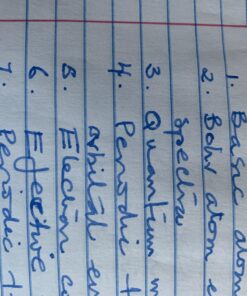 1. Basic atom
2. Bohr atom e
spectra
3. Quantum m
4. Periodic t
orbital en
5. Electron c
6. Effective
7. Periodic t